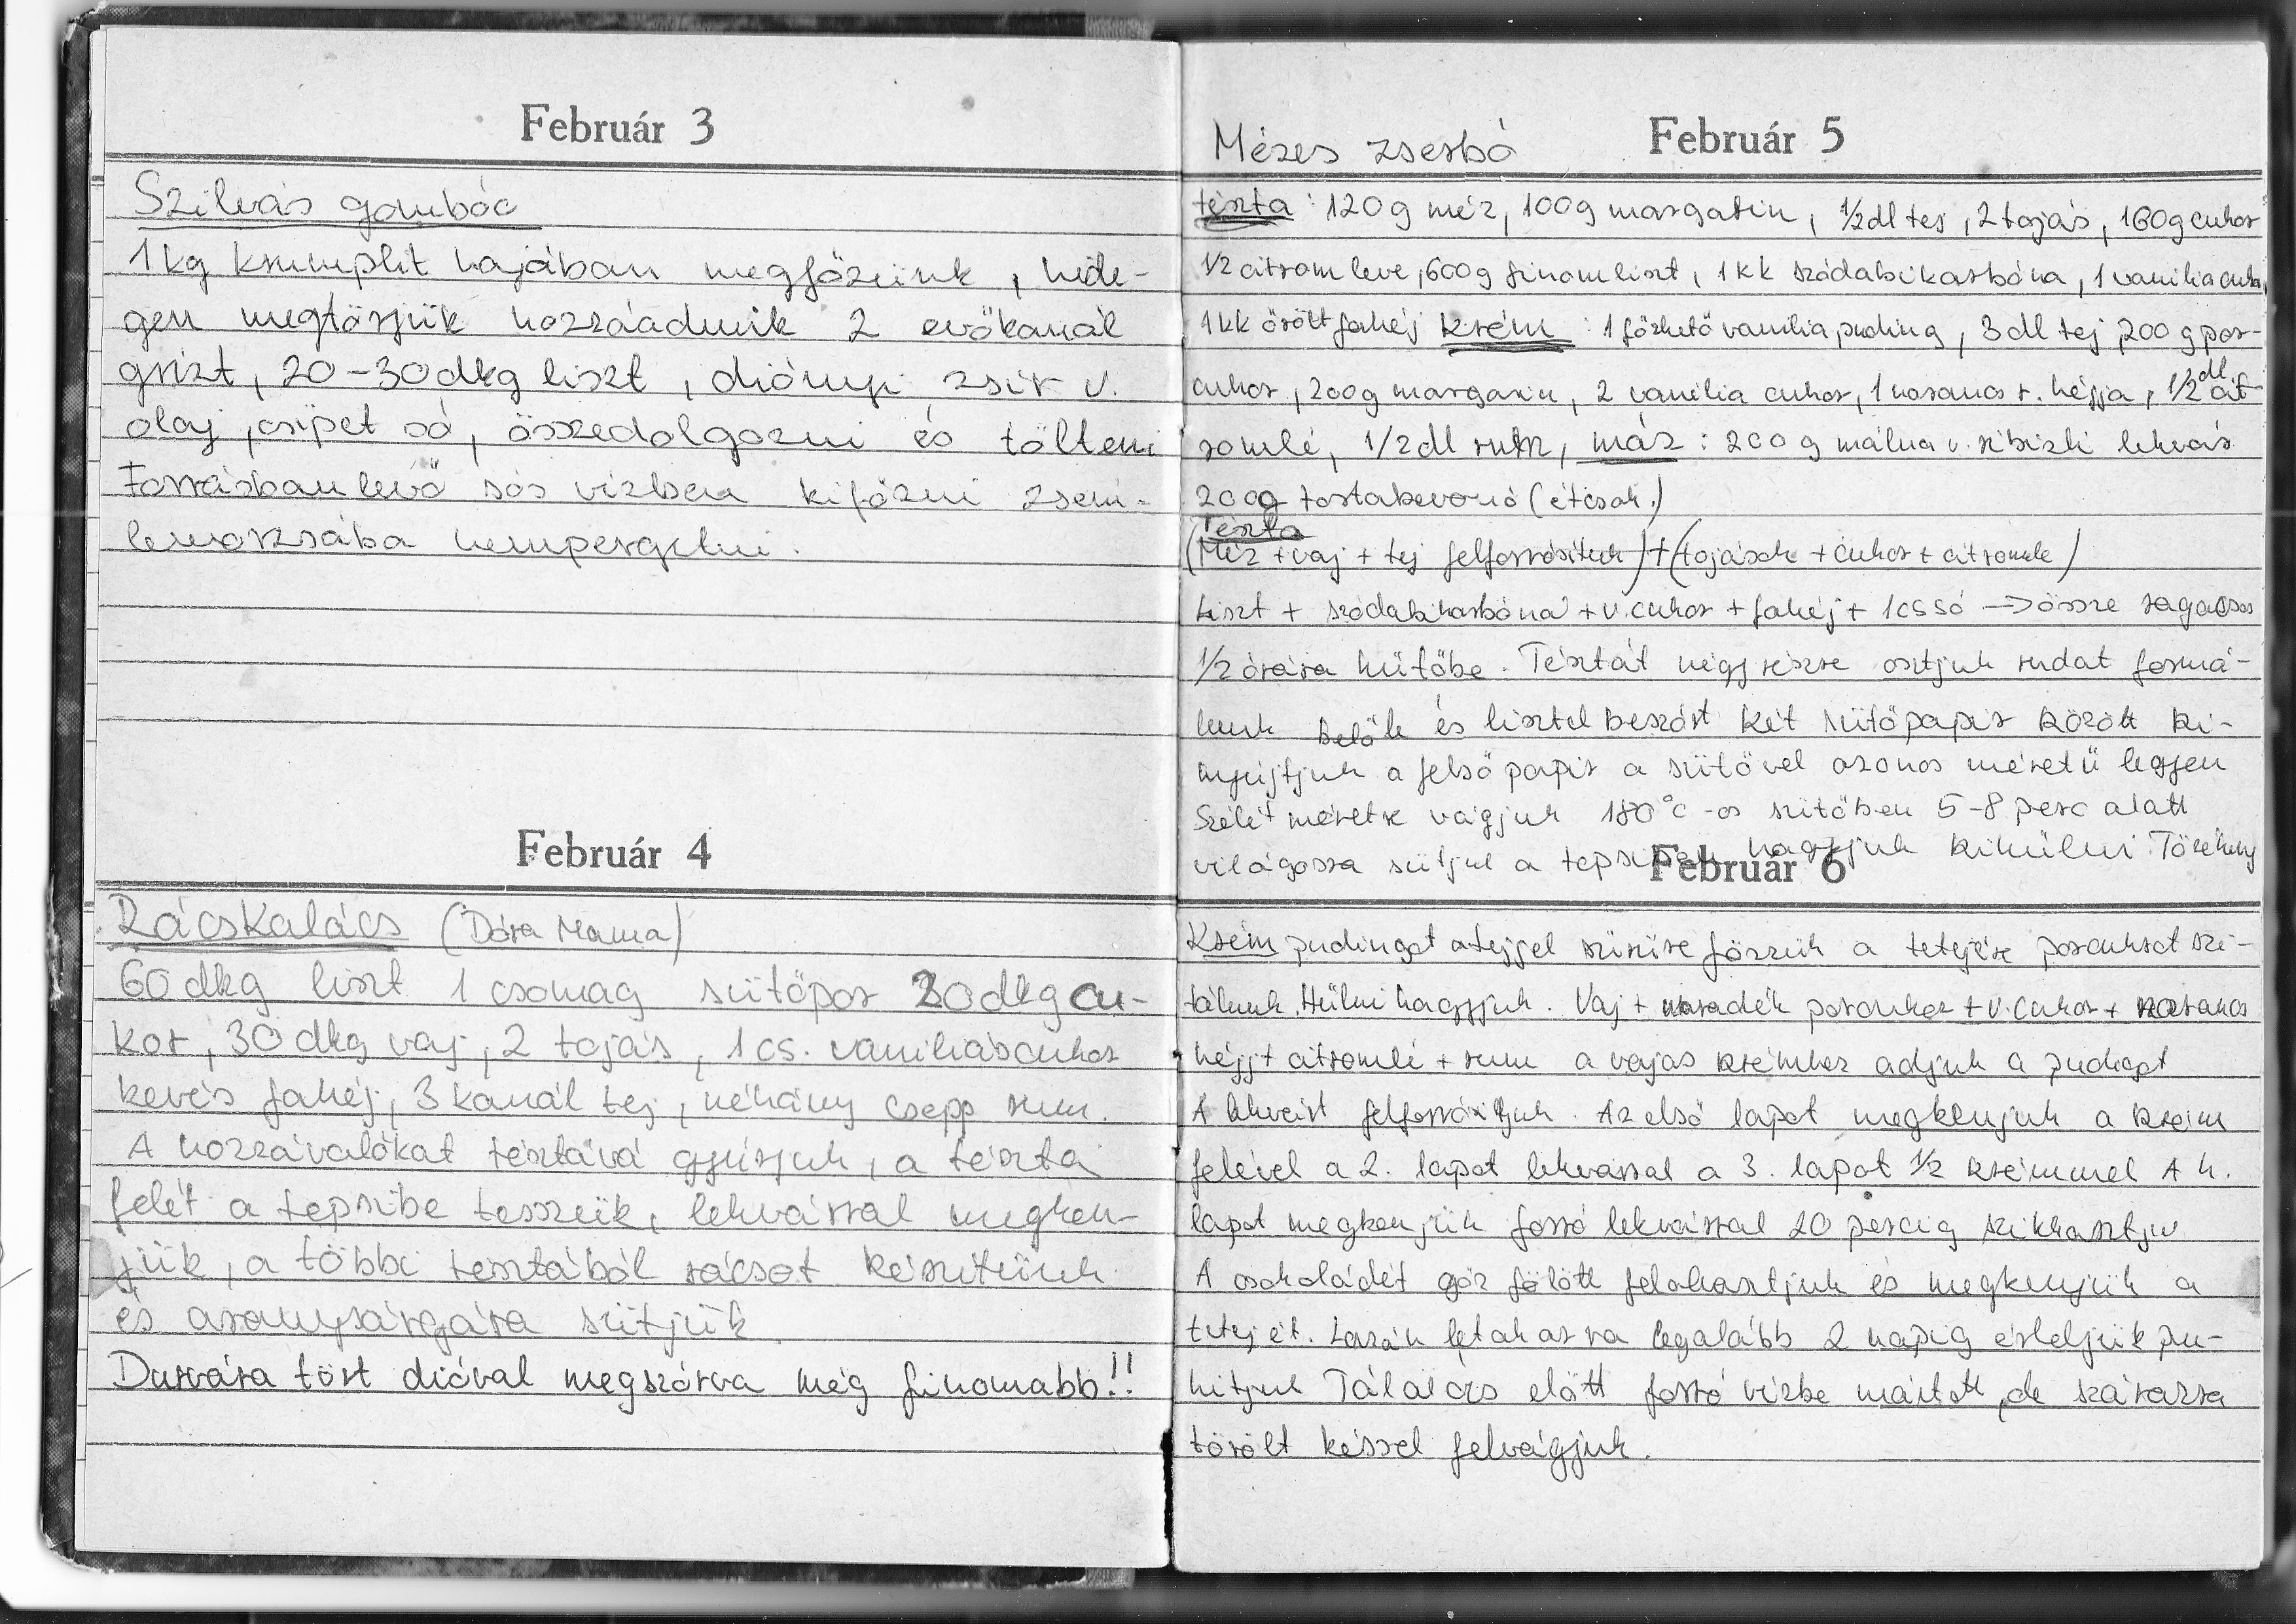 Február 3
Szilvás gombóc
1 kg krumplit hajában megfőzünk, hide-
gen megtörjük hozzáadunk 2 evőkanál
grízt, 20-30 dkg liszt, diónyi zsír v.
olaj, csipet só, összedolgozni és tölteni
Forrásban levő sós vízben kifőzni zsem-
lemorzsába hempergetni.
Február 4
Rácskalács (Dóra Mama)
60 dkg liszt 1 csomag sütőpor 20 dkg cu-
kor, 30 dkg vaj, 2 tojás, 1 cs. vaniliáscukor
kevés fahéj, 3 kanál tej, néhány csepp rum.
A hozzávalókat tésztává gyúrjuk, a tészta
felét a tepsibe tesszük, lekvárral megken-
jük, a többi tésztából rácsot készítünk
és aranysárgára sütjük
Durvára tört dióval megszórva még finomabb!!
Február 5
Mézes zserbó
tészta: 120 g méz, 100 g margarin, 1/2 dl tej, 2 tojás, 160 g cukor
1/2 citrom leve, 600 g finomliszt, 1 kk szódabikarbóna, 1 vanilia cukor,
1 kk őrölt fahéj krém: 1 főzhető vanilia puding, 3 dl tej 200 g por-
cukor, 200 g margarin, 2 vanilia cukor, 1 narancs r. héjja, 1/2 dl cit-
romlé, 1/2 dl rum, máz: 200 g málna v. ribizli lekvár
200g tortabevonó (étcsok.)
Tészta
(Méz + vaj + tej felforrósítuk) + (tojások + cukor + citromle)
Liszt + szódabikarbóna + v.cukor + fahéj + 1 cs só → össze ragacsos
1/2 órára hűtőbe. Tésztát négy részre osztjuk rudat formá-
lunk belőle és lisztel beszórt két sütőpapír között ki-
nyújtjuk a felső papír a sütővel azonos méretű legyen
Szélét méretre vágjuk 180°C-os sütőben 5-8 perc alatt
világosra sütjük a tepsiben hagyjuk kihűlni. Törékeny
Február 6
Krém pudingot a tejjel sűrűre főzzük a tetejére porcukrot szi-
tálunk. Hülni hagyjuk. Vaj + maradék porcukor + v.cukor + narancs
héjj + citromlé + rum a vajas krémhez adjuk a pudingot
A lekvárt felforrósítjuk. Az első lapot megkenjük a krém
felével a 2. lapot lekvárral a 3. lapot 1/2 krémmel A 4.
lapot megkenjük forró lekvárral 20 percig szikkasztju
A csokoládét gőz fölött felolvasztjuk és megkenjük a
tetejét. Lazán letakarva legalább 2 napig érleljük pu-
hítjuk Tálalás előtt forró vízbe mártott, de szárazra
törölt késsel felvágjuk.